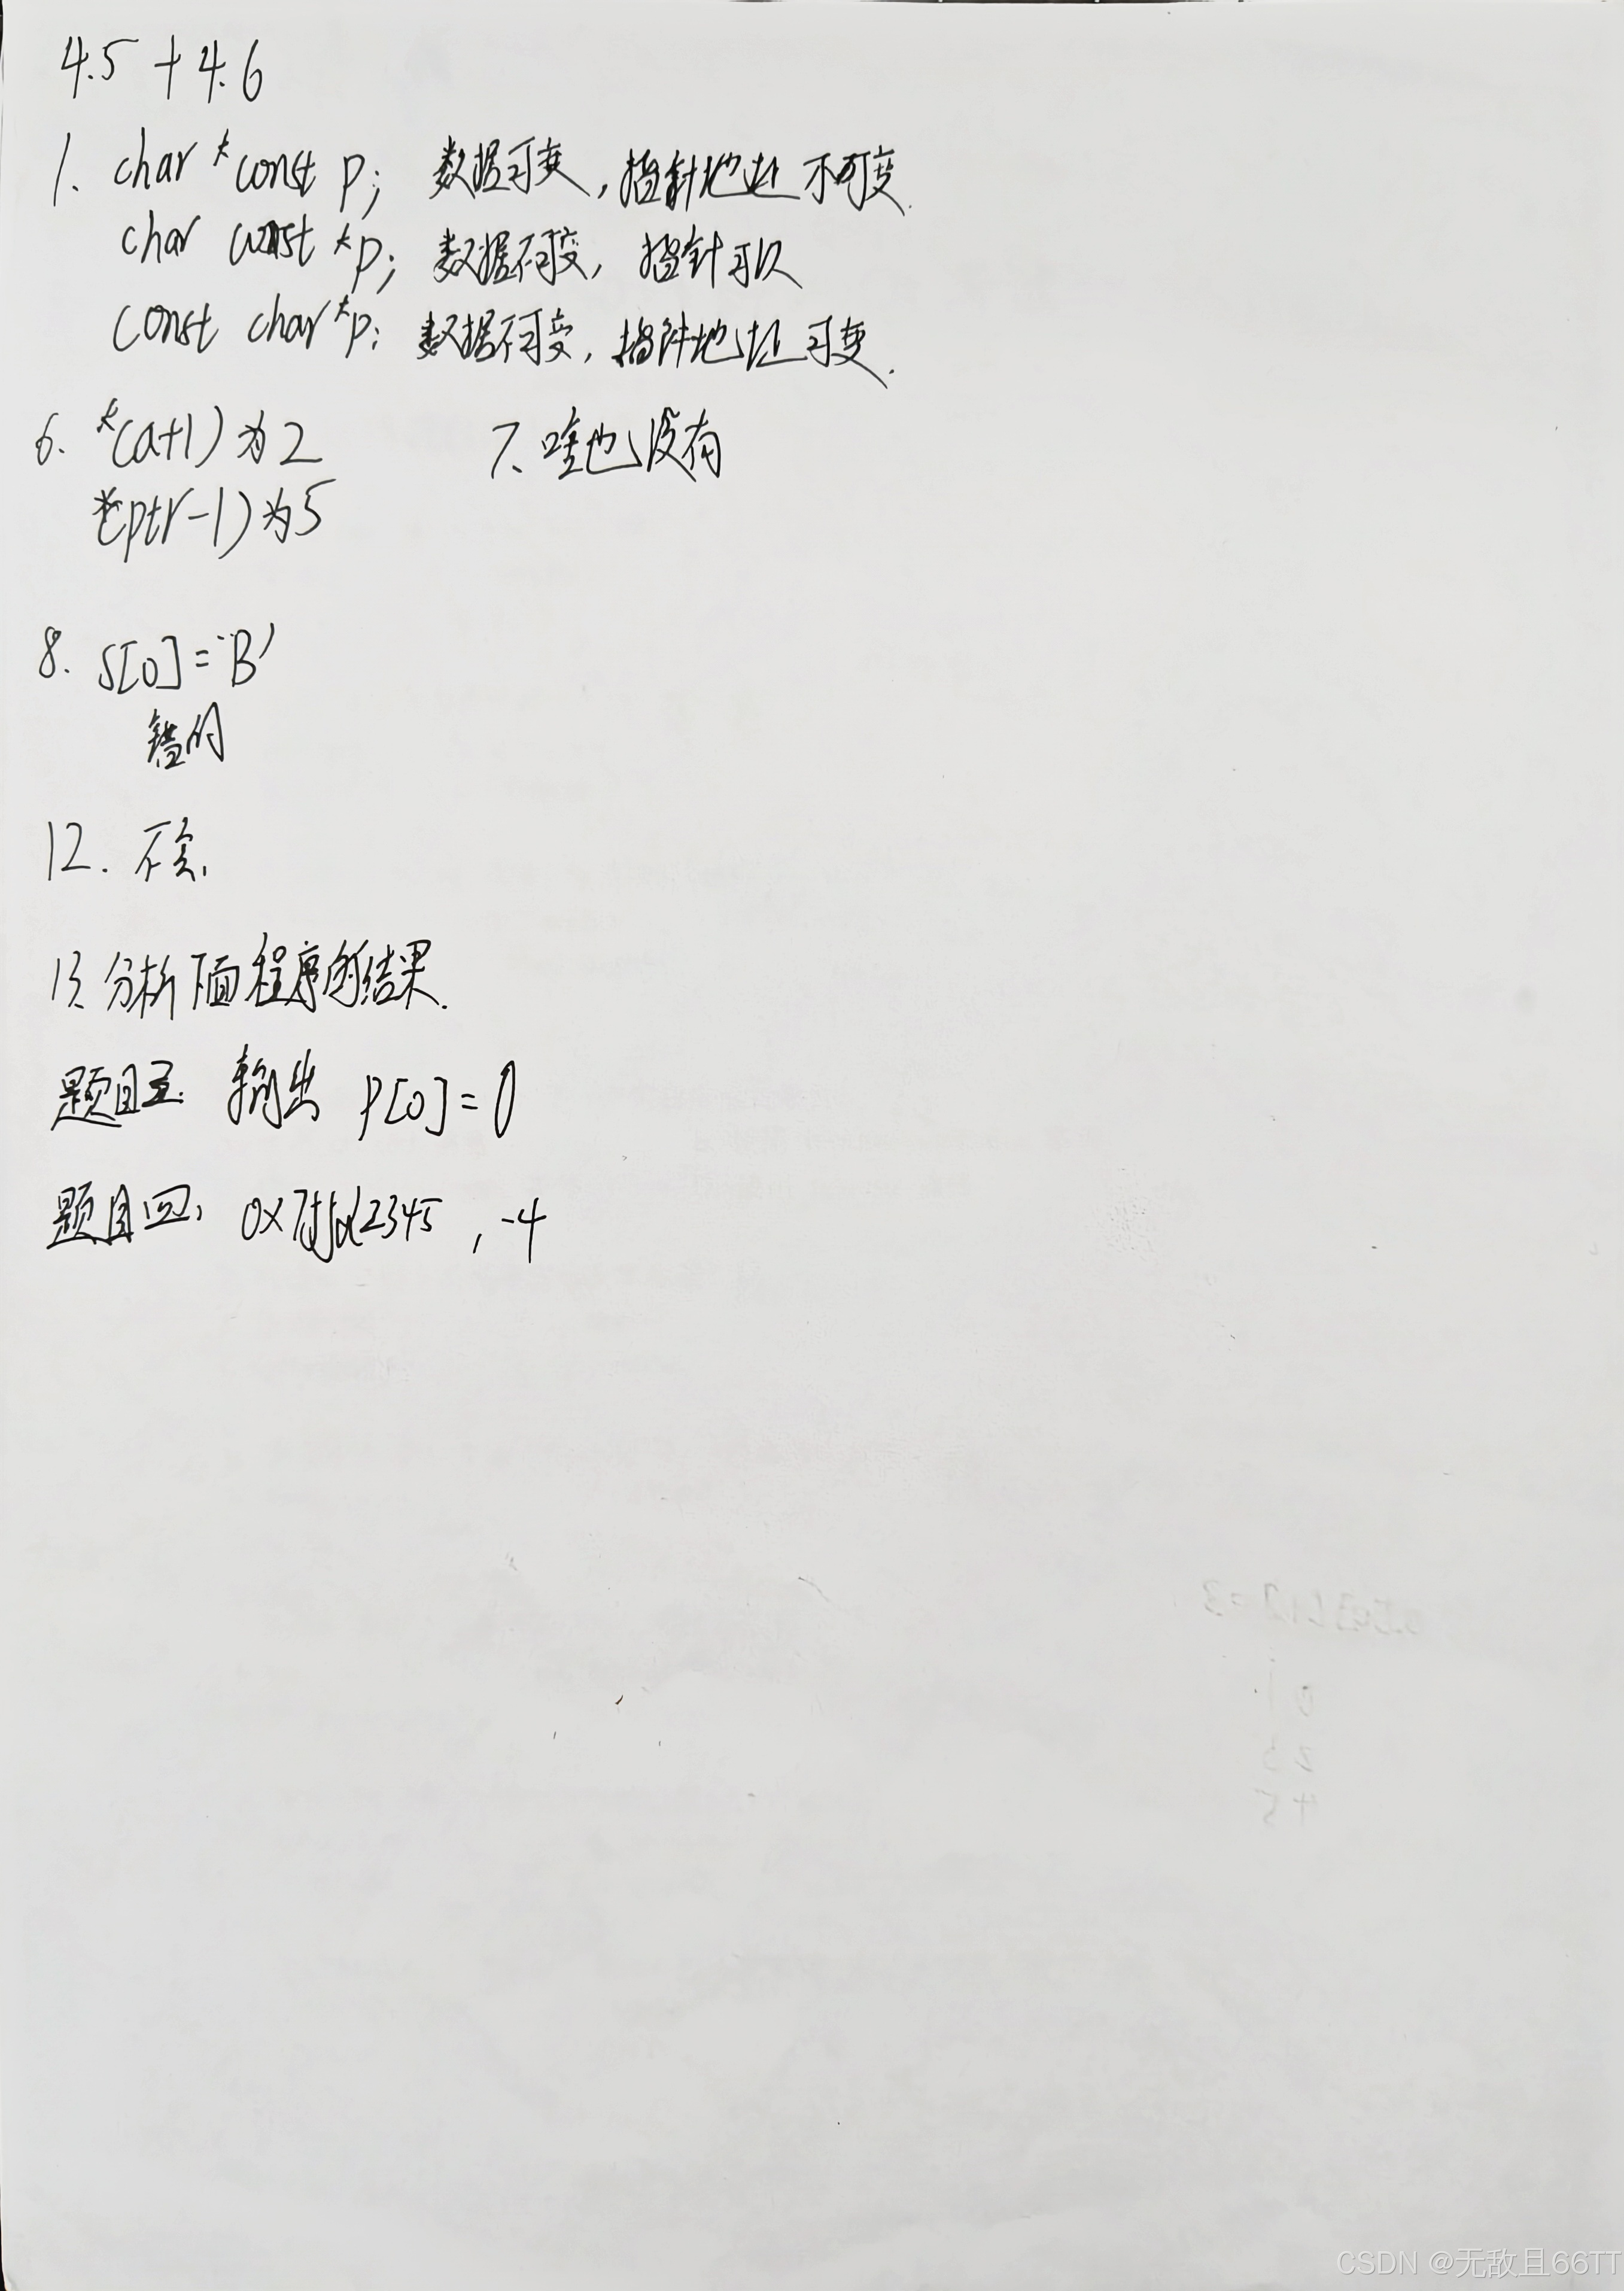 4.5 + 4.6
1. char *const p; 数据可变,指针地址不可变.
char const *p; 数据不可变, 指针可以
const char *p; 数据不可变,指针地址可变.
6. *(a+1)为2
7. 啥也没有
*(ptr-1)为5
8. s[0]='B'
错的
12. 不会.
13.分析下面程序的结果.
题目三: 输出 p[0]=0
题目四: ,-4
CSDN @无敌且66TT